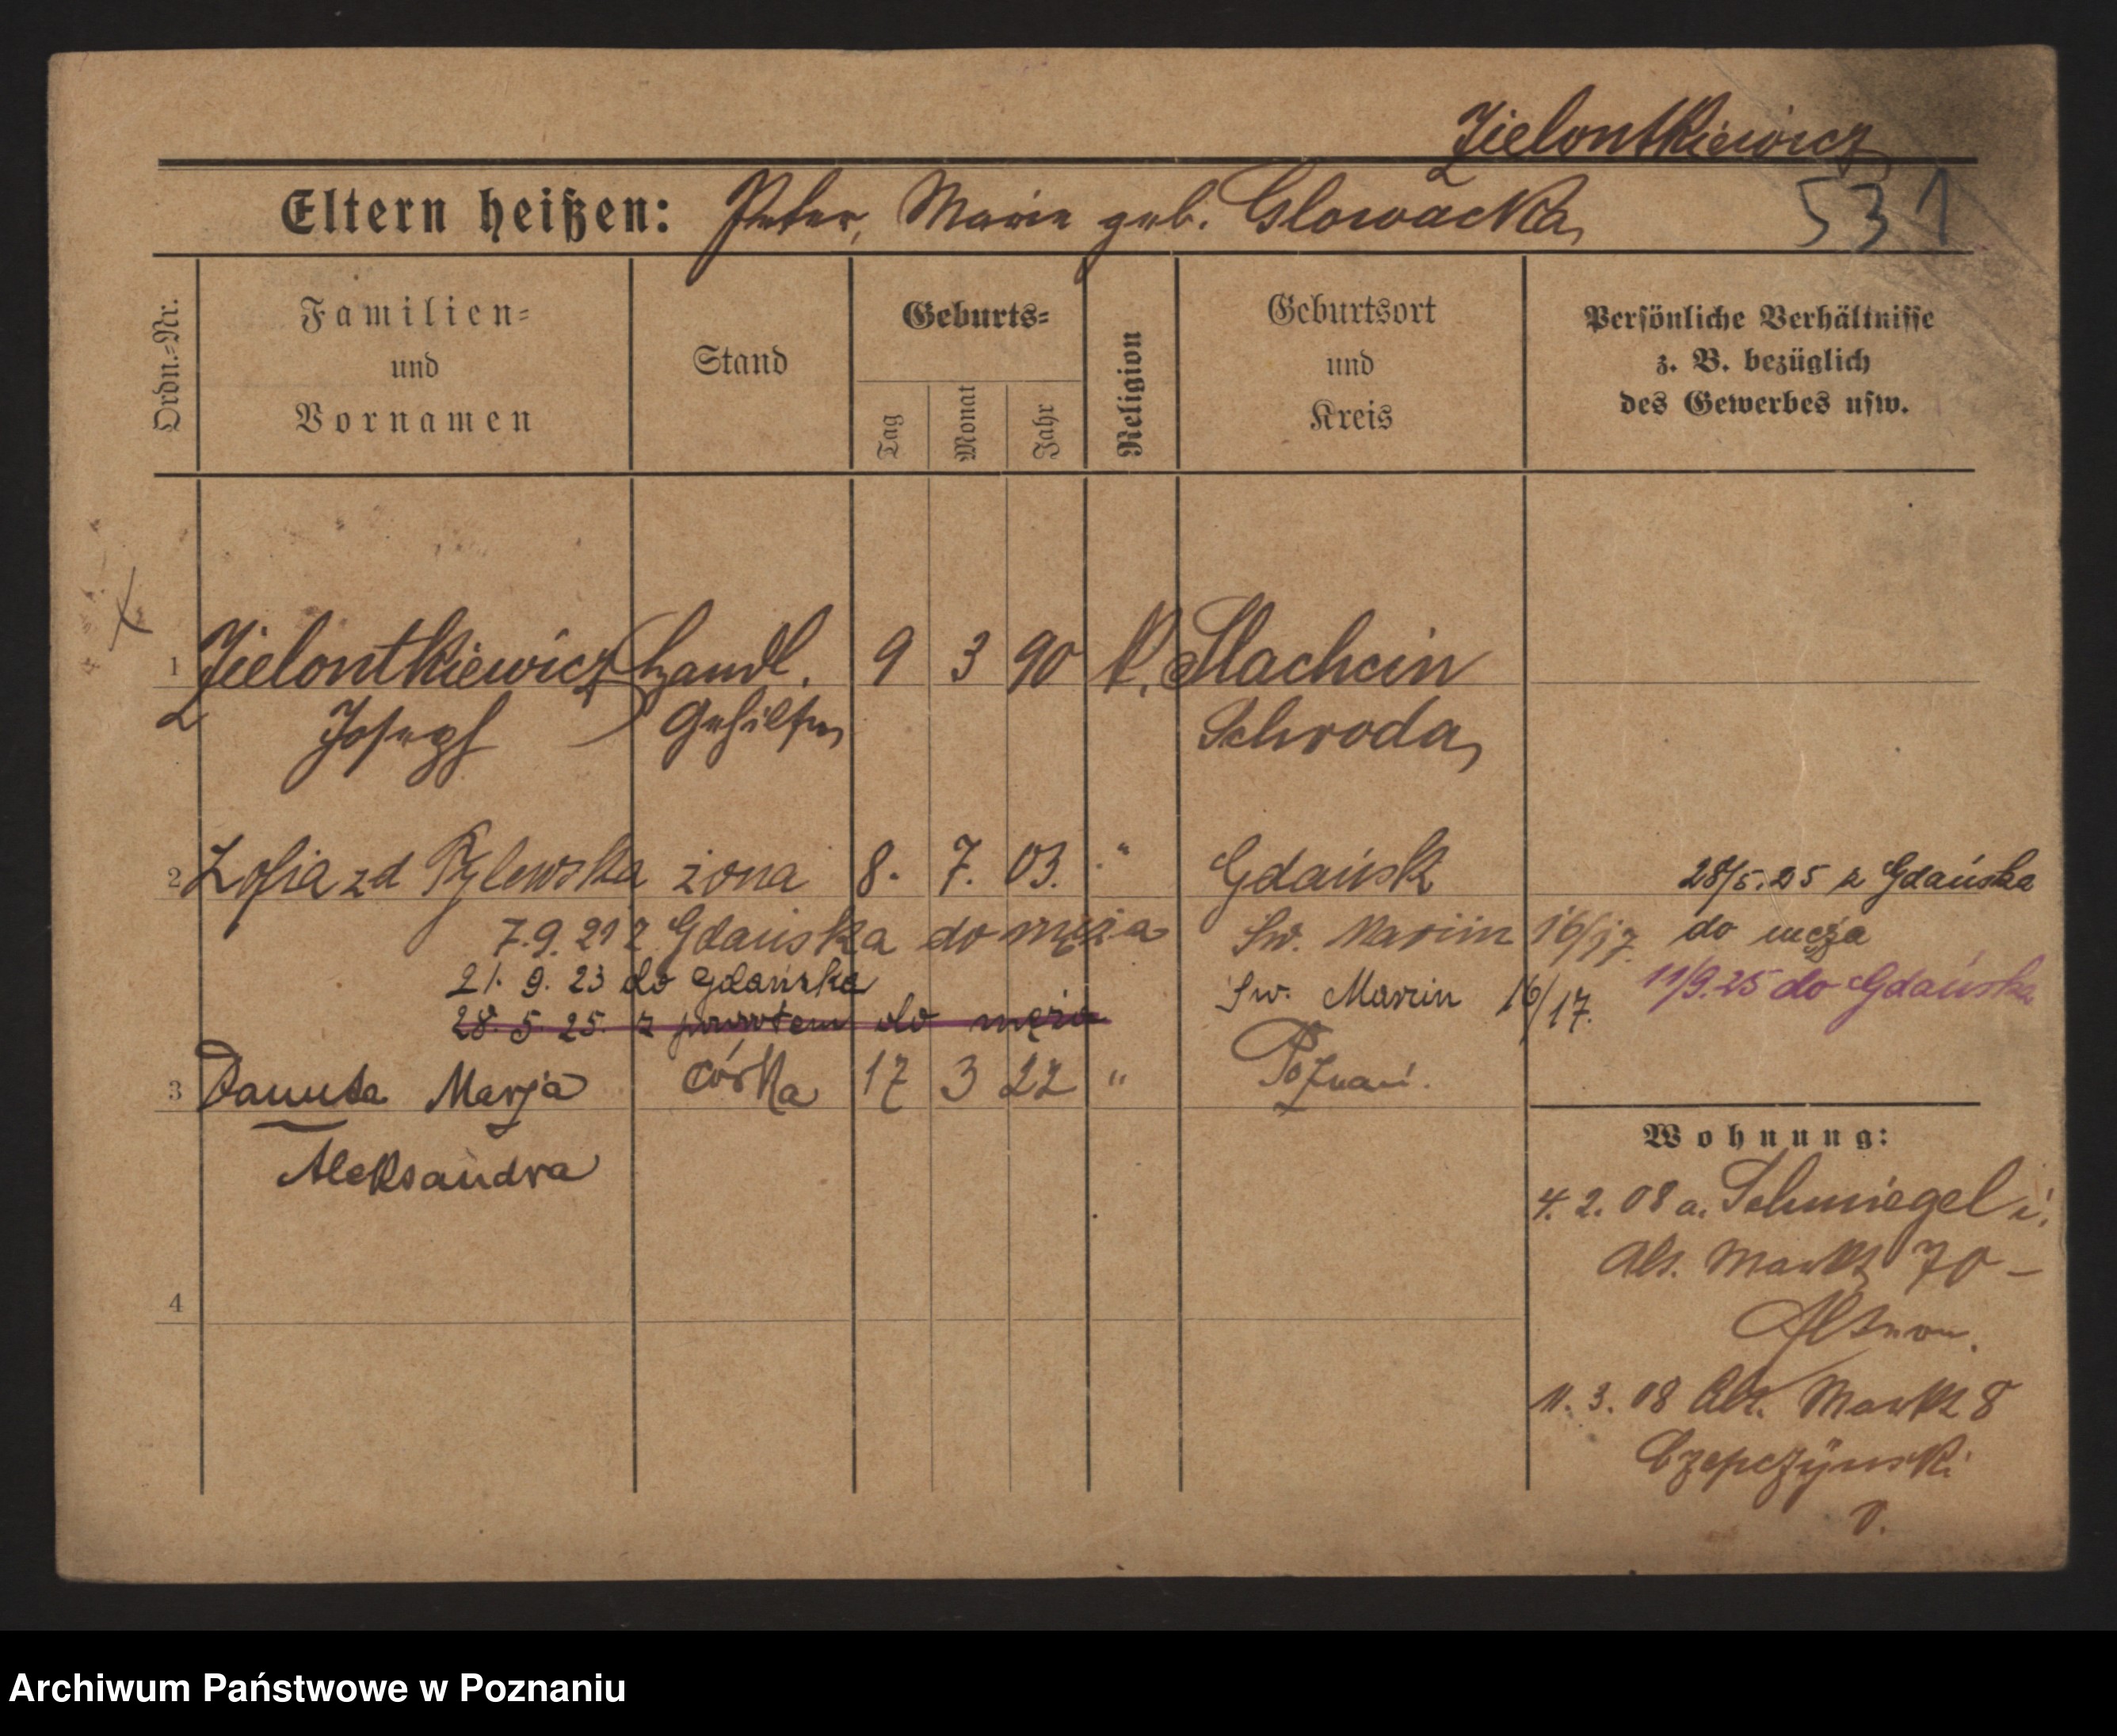 Zielontkiewicz
Eltern heißen: Peter, Marie geb. Glowacka
531
Ordn.-Nr.
Familien- und Vornamen
Stand
Geburts-
Tag
Monat
Jahr
Religion
Geburtsort und Kreis
Persönliche Verhältnisse z. B. bezüglich des Gewerbes usw.
1 Zielontkiewicz Handl. 9 3 90 k. Slachcin
Joseph Gehilfen Schroda
2 Zofia zd Pylewska żona 8. 7. 03. " Gdańsk
28/5.25 z Gdańska
7.9.21 z Gdańska do męża Św. Marcin 16/17
do męża
21. 9. 23 do Gdańska Św. Marcin 16/17.
11/9.25 do Gdańska
28. 5. 25. z powrotem do męża
3 Danuta Marja córka 17 3 22 " Poznań.
Aleksandra
4
Wohnung:
4. 2. 08 a. Schmiegel i.
Alt. Markt 70 –
11. 3. 08 Alt. Markt 8
Czepczyński
Archiwum Państwowe w Poznaniu